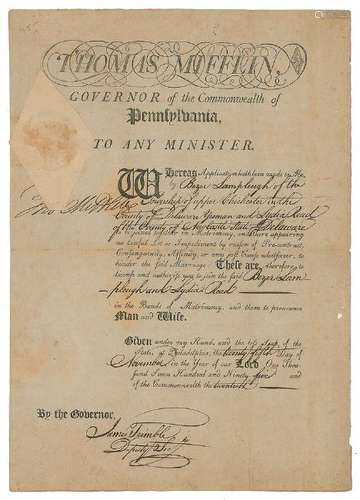 THOMAS MIFFLIN,
GOVERNOR of the Commonwealth of
Pennsylvania,
TO ANY MINISTER.
WHereas Application hath been made to Me
by Bezer Lamplugh of the
Township of upper Chichester in the
County of Delaware Yeoman and Lydia Reed
of the County of Newcastle State of Delaware
to be joined in Matrimony, and there appearing
no lawful Let or Impediment by reason of Pre-contract,
Consanguinity, Affinity, or any just Cause whatsoever, to
hinder the said Marriage: These are therefore, to
licence and authorize you to join the said Bezer Lam
plugh and Lydia Reed
in the Bands of Matrimony, and them to pronounce
Man and Wife.
Given under my Hand, and the less Seal of the
State, at Philadelphia, the twenty fifth Day of
November in the Year of our Lord One Thou
sand Seven Hundred and Ninety five and
of the Commonwealth the twentieth
By the Governor,
James Trimble
Deputy Sec